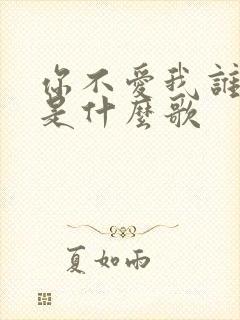 你不愛我誰
是什麼歌
夏如雨